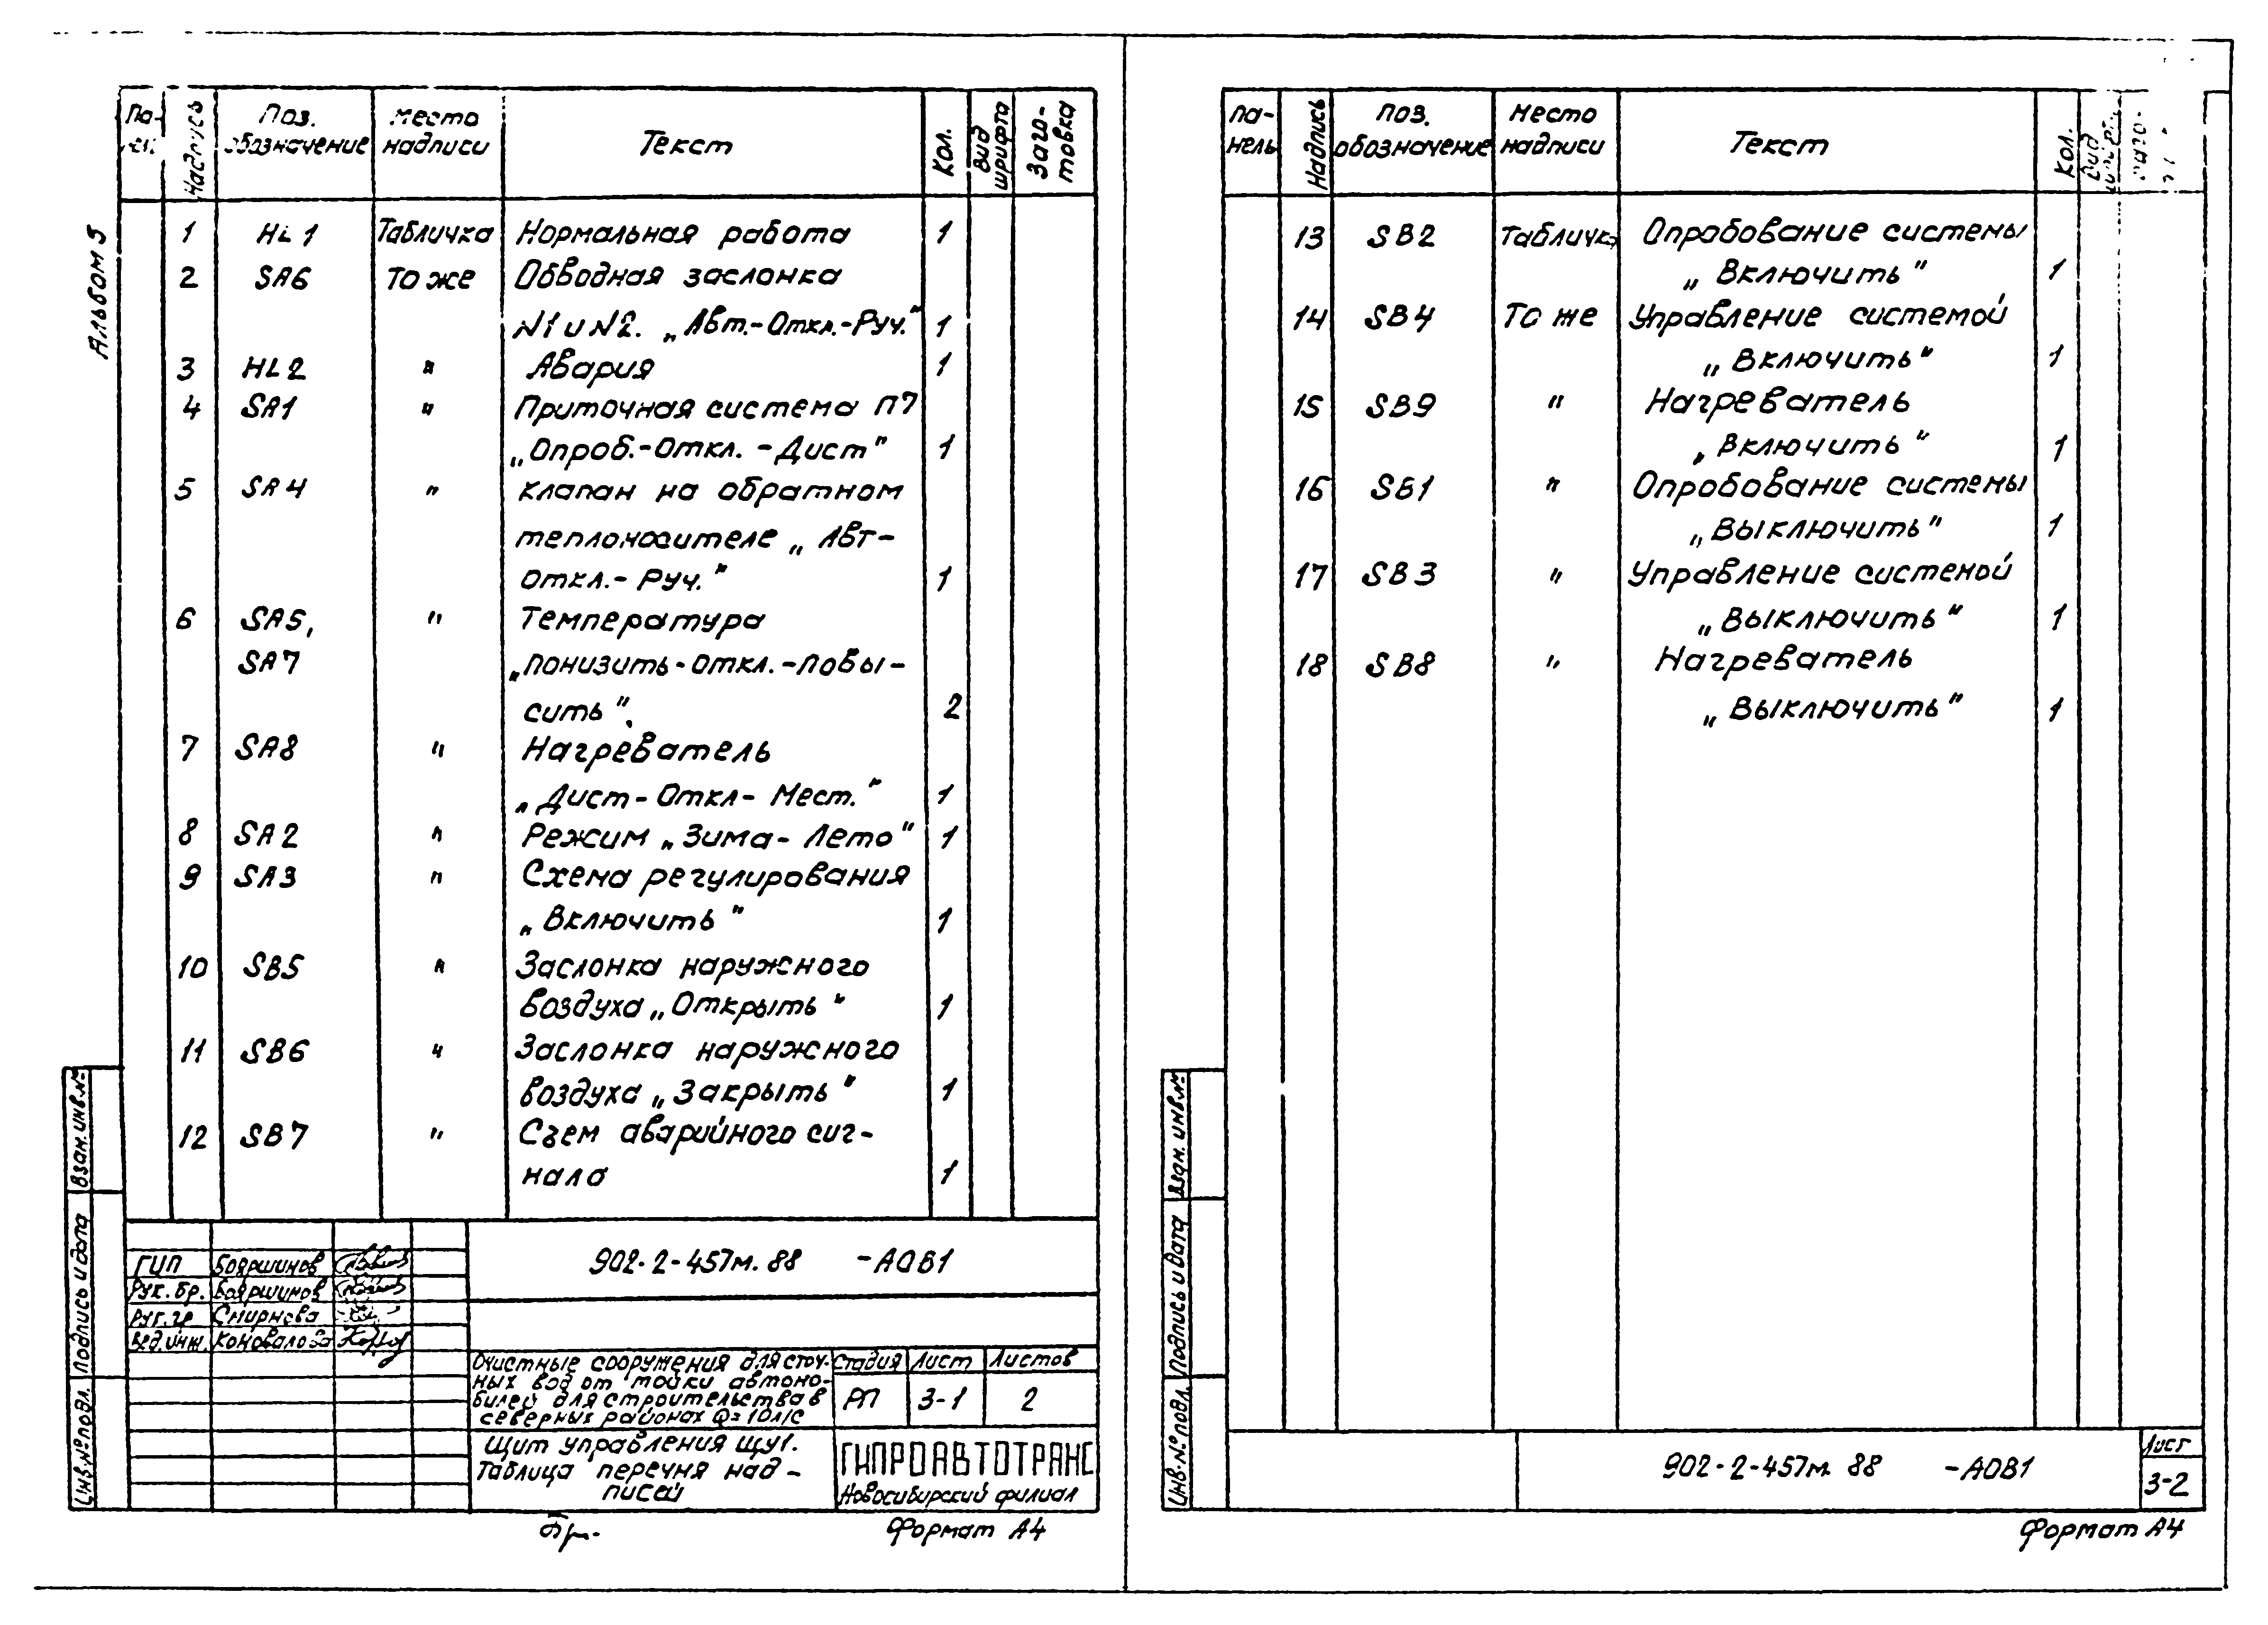 Альбом 5
Надпись
Поз. обозначение
Место надписи
Текст
Кол.
Вид шрифта
Заготовка
1 HL1 Табличка Нормальная работа 1
2 SA6 То же Обводная заслонка
N1 и N2. „Авт.-Откл.-Руч." 1
3 HL2 " Авария 1
4 SA1 " Приточная система П7
„Опроб.-Откл.-Дист" 1
5 SA4 " Клапан на обратном
теплоносителе „Авт-
Откл.-Руч." 1
6 SA5, " Температура
SA7 „Понизить-Откл.-Повы-
сить". 2
7 SA8 " Нагреватель
„Дист-Откл-Мест." 1
8 SA2 " Режим „Зима-Лето" 1
9 SA3 " Схема регулирования
„Включить" 1
10 SB5 " Заслонка наружного
воздуха „Открыть" 1
11 SB6 " Заслонка наружного
воздуха „Закрыть" 1
12 SB7 " Съем аварийного сиг-
нала 1
Взам. инв. №
Подпись и дата
Инв. № подл.
ГИП Бояршинов
Рук. бр. Бояршинов
Рук. гр Смирнова
Вед. инж. Коновалова
902-2-457м. 88 -АОВ1
Очистные сооружения для сточ-
ных вод от мойки автомо-
билей для строительства в
северных районах Q=10л/с
Стадия Лист Листов
РП 3-1 2
Щит управления ЩУ1.
Таблица перечня над-
писей
ГИПРОАВТОТРАНС
Новосибирский филиал
Формат А4
Па-
нель
Надпись
Поз. обозначение
Место надписи
Текст
Кол.
Вид
13 SB2 Табличка Опробование системы
„Включить" 1
14 SB4 То же Управление системой
„Включить" 1
15 SB9 " Нагреватель
„Включить" 1
16 SB1 " Опробование системы
„Выключить" 1
17 SB3 " Управление системой
„Выключить" 1
18 SB8 " Нагреватель
„Выключить" 1
Взам. инв. №
Подпись и дата
Инв. № подл.
902-2-457м. 88 -АОВ1
Лист
3-2
Формат А4